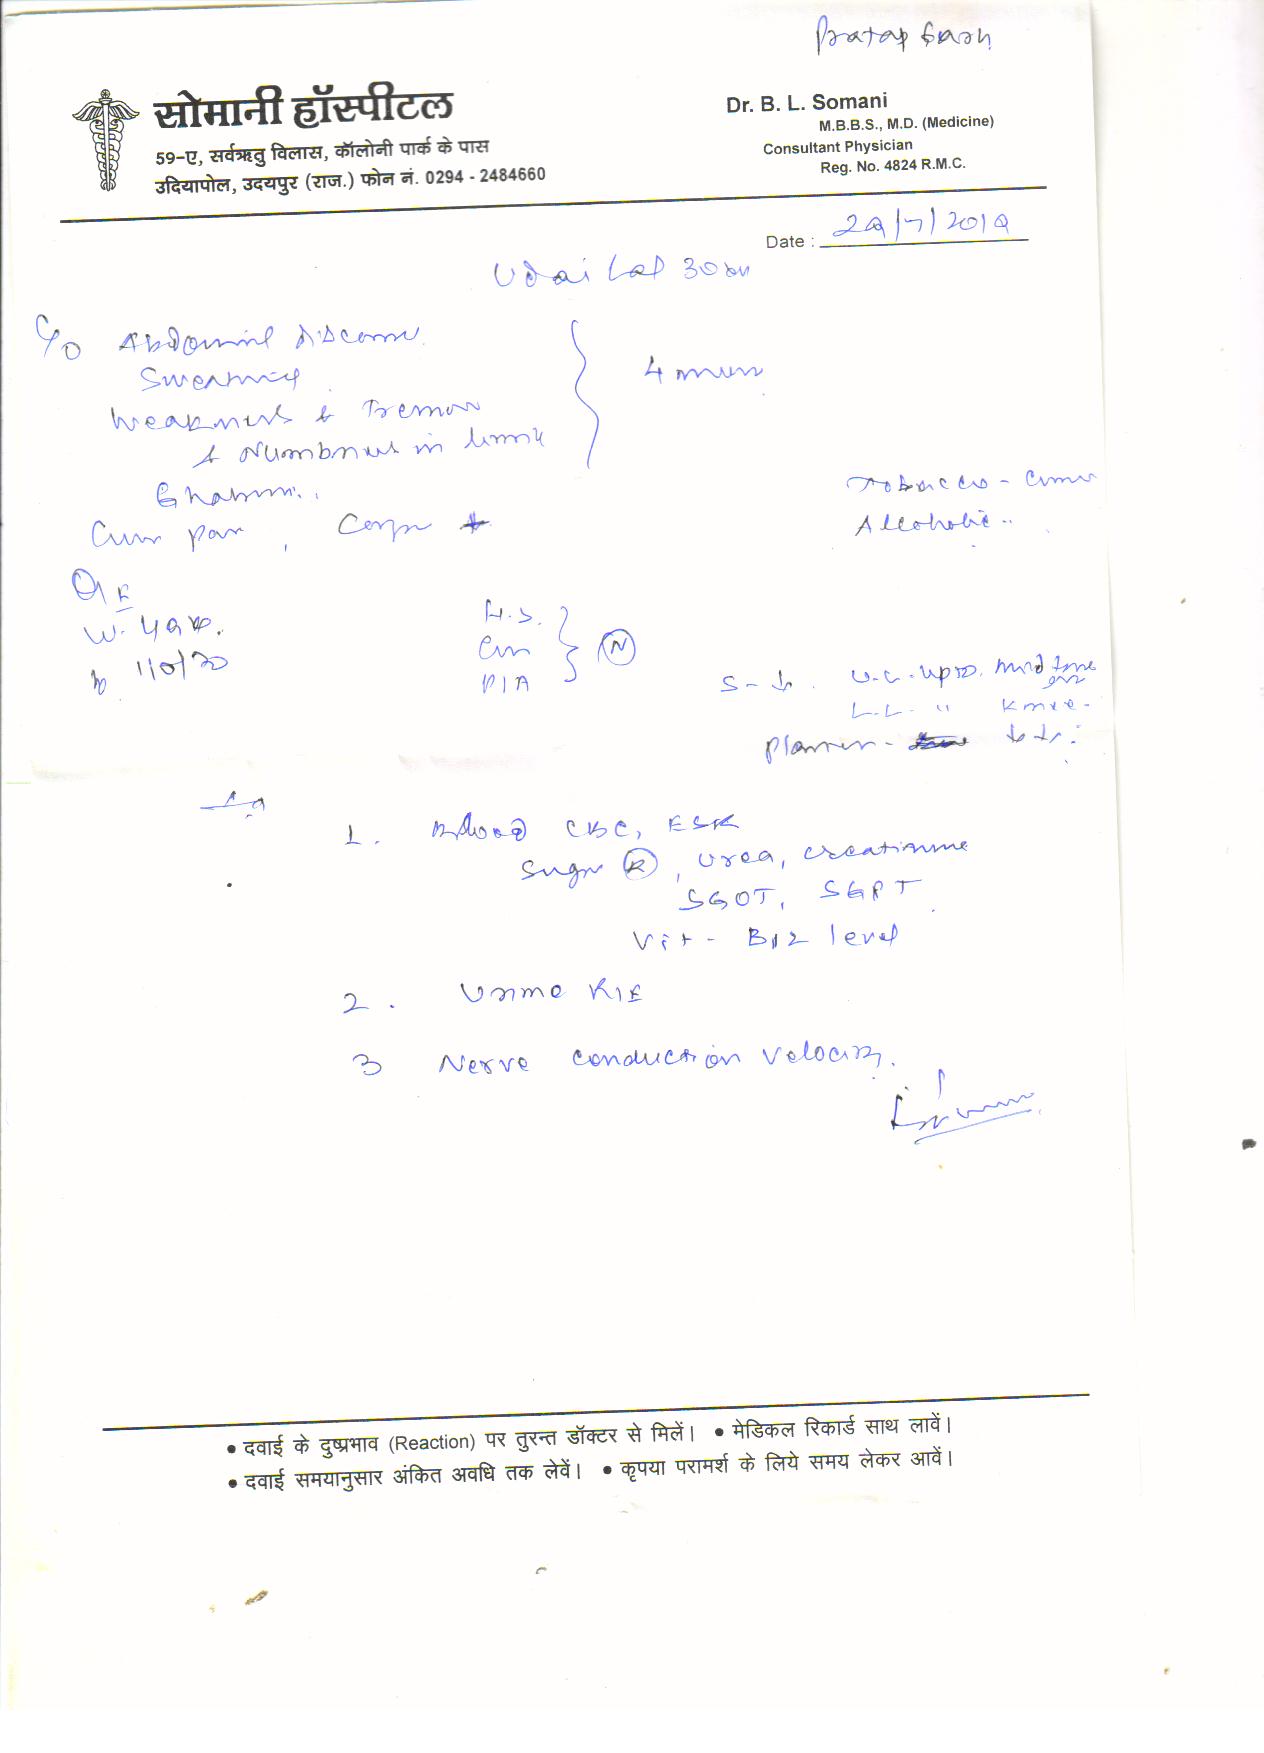 Pratap Garh
सोमानी हॉस्पीटल
59-ए, सर्वऋतु विलास, कॉलोनी पार्क के पास
उदियापोल, उदयपुर (राज.) फोन नं. 0294 - 2484660
Dr. B. L. Somani
M.B.B.S., M.D. (Medicine)
Consultant Physician
Reg. No. 4824 R.M.C.
Date : 29/7/2019
Udai Lal 30
C/o Abdominal
Sweating
Weakness & Tremor
& Numbness in limbs
4
Tobacco -
Alcoholic
O/E
W. 49
110/70
H.S.
P/A
N
S - ↓. U.L. upto mid
L.L. " knee -
Planter -
1. Blood CBC, ESR
Sugar R, Urea, creatinine
SGOT, SGPT
Vit - B12 level
2. Urine R/E
3 Nerve conduction Velocity.
• दवाई के दुष्प्रभाव (Reaction) पर तुरन्त डॉक्टर से मिलें। • मेडिकल रिकार्ड साथ लावें।
• दवाई समयानुसार अंकित अवधि तक लेवें। • कृपया परामर्श के लिये समय लेकर आवें।